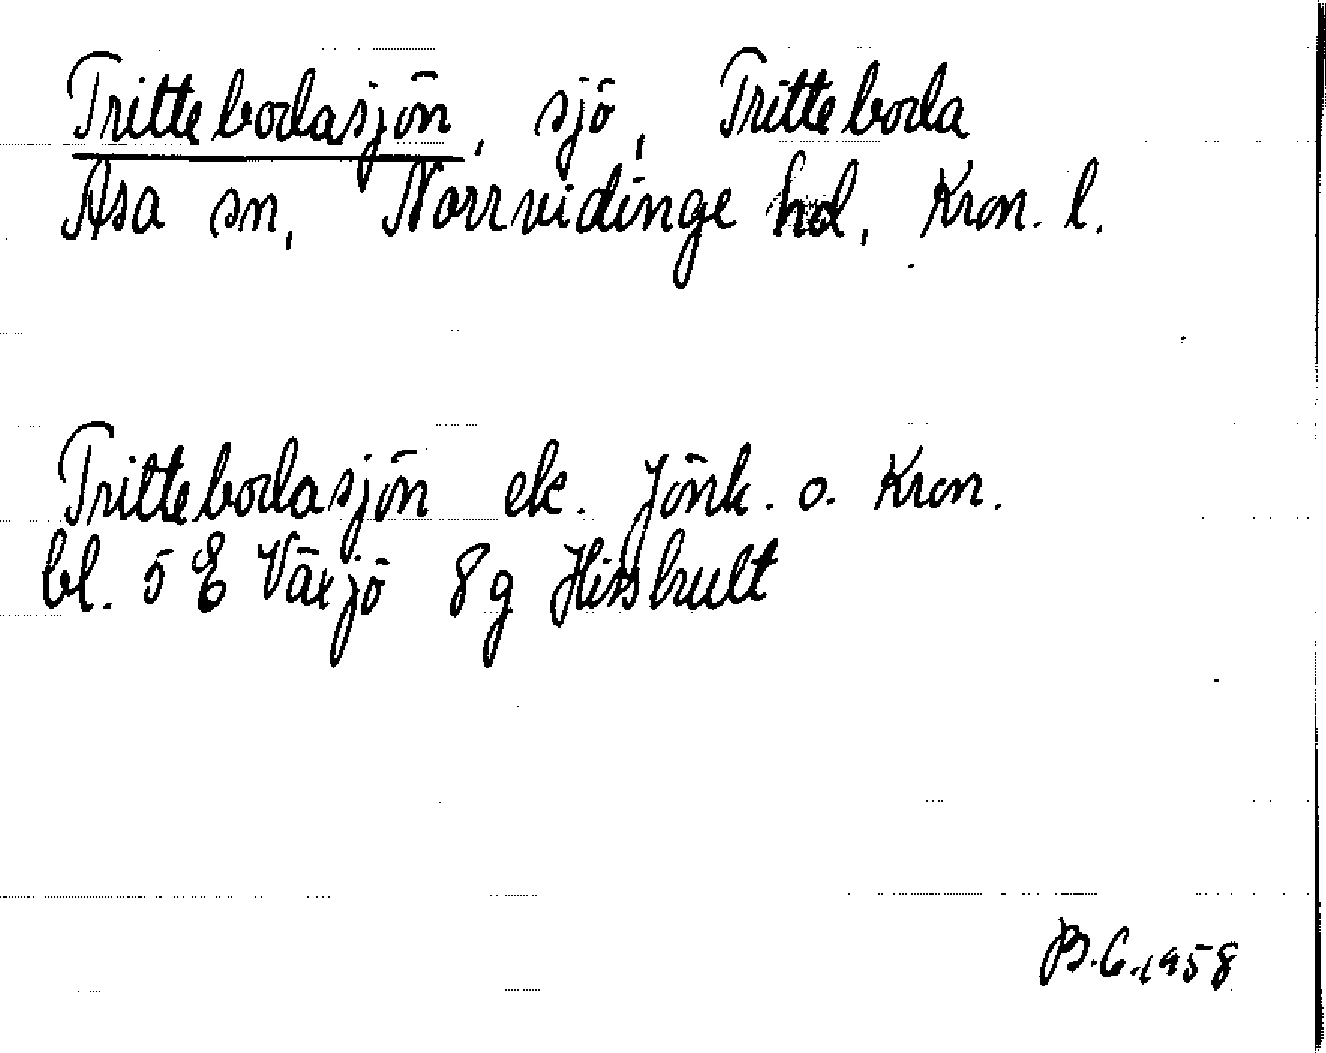 Trittebodasjön, sjö, Tritteboda
Asa sn, Norrvidinge hd, Kron. l.
Trittebodasjön ek. Jönk. o. Kron.
bl. 5 E Växjö 8g Hisshult
B.C.1958